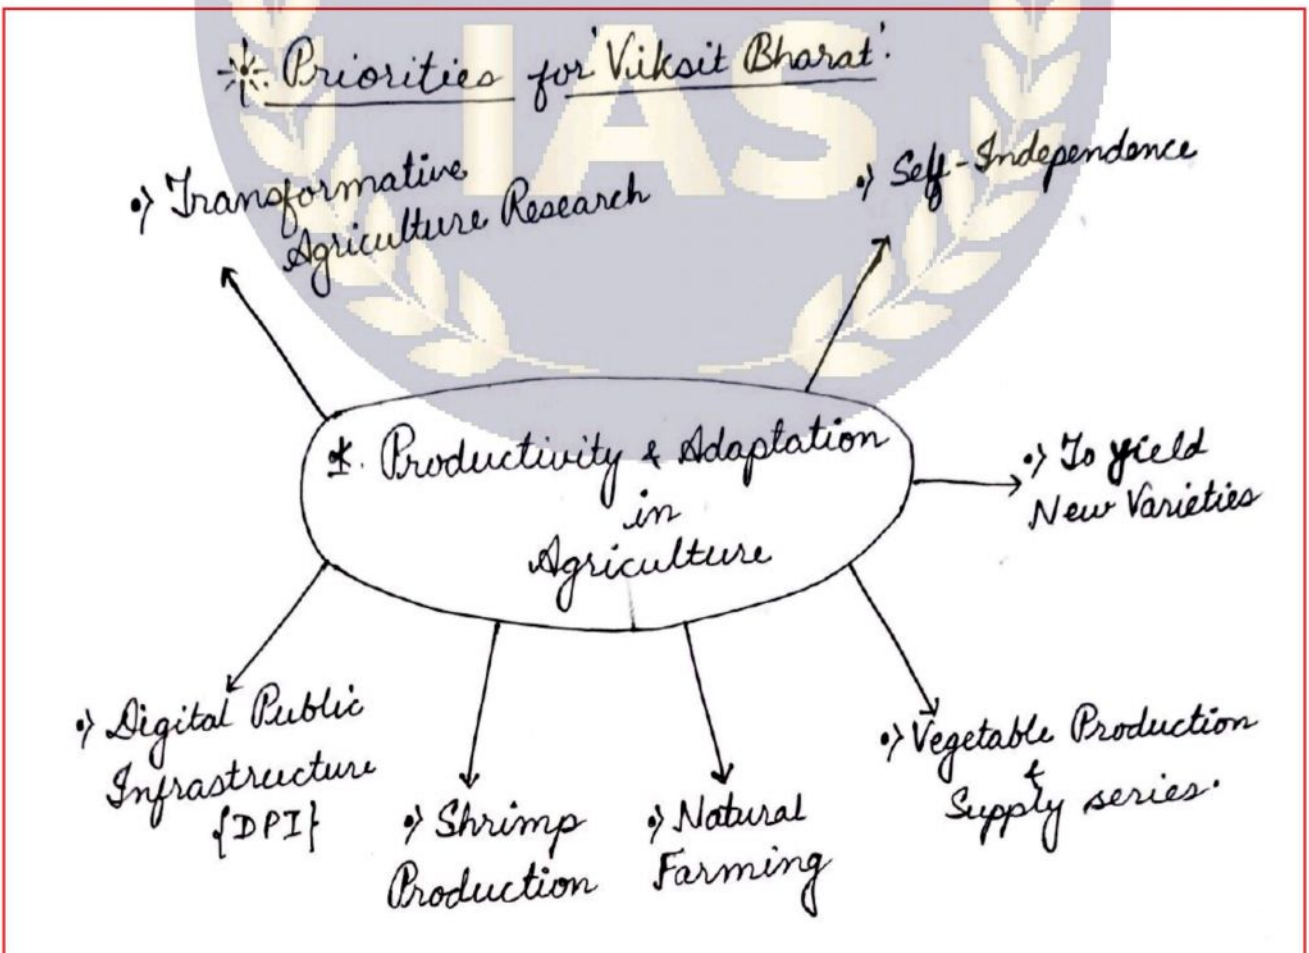 IAS
Priorities for 'Viksit Bharat'.
Transformative
Agriculture Research
Self-Independence
*. Productivity & Adaptation
in
Agriculture
To yield
New Varieties
Digital Public
Infrastructure
{DPI}
Shrimp
Production
Natural
Farming
Vegetable Production
&
Supply series.